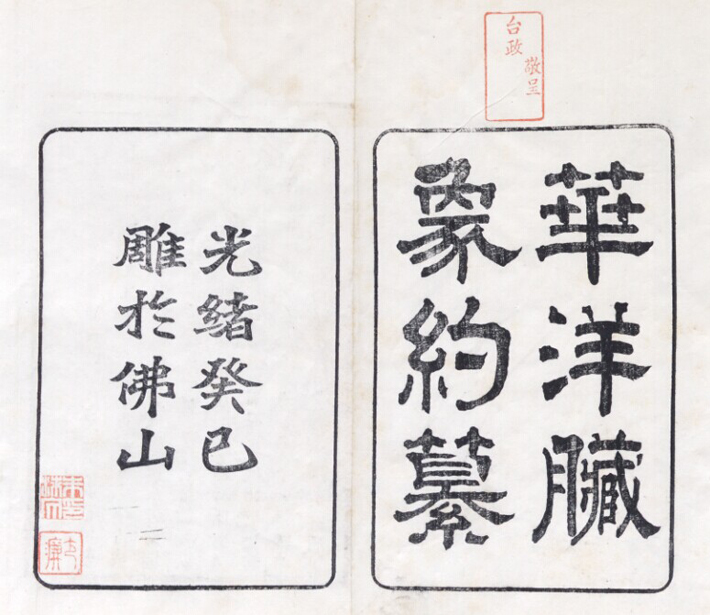 敬呈
台政
華洋臟
象約纂
光緒癸巳
雕於佛山